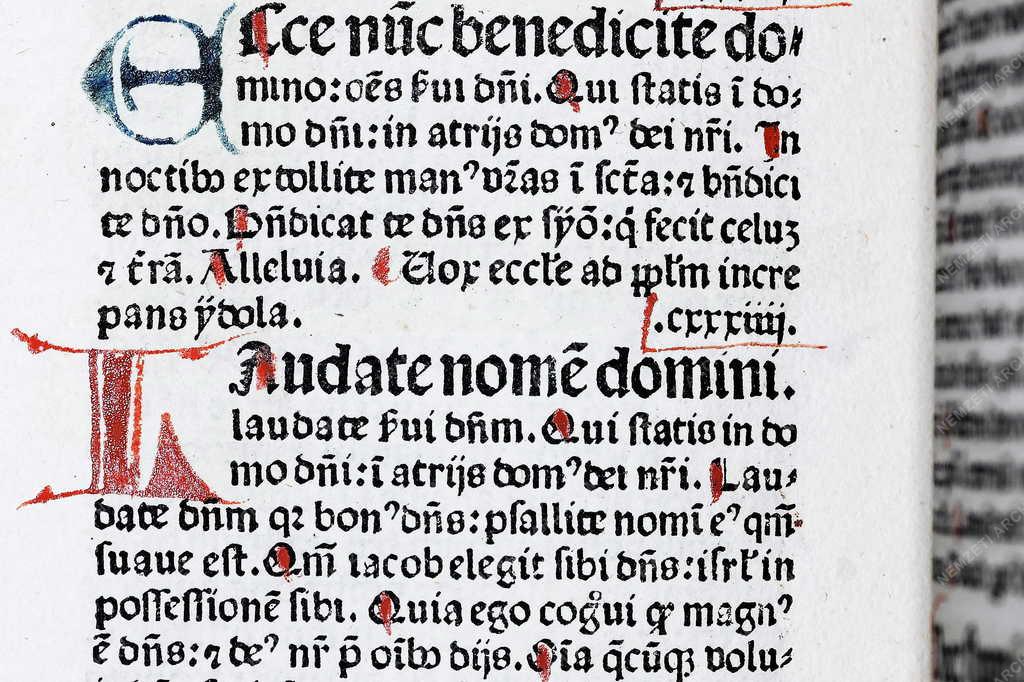 Ecce nũc benedicite do⸗
mino: oẽs ẜui dñi. Qui ſtatis ĩ do⸗
mo dñi: in atrijs domꝰ dei nr̃i. In
noctibꝫ extollite manꝰ vr̃as ĩ ſct̃a: ⁊ bñdici
te dño. Bñdicat te dñs ex ſyõ: q̇ fecit celuꝫ
⁊ t̃rã. Alleluia. Vox eccl̃e ad ppl̃m incre
pans ydola. .cxxxiiij.
Laudate nomẽ domini.
laudate ẜui dñm. Qui ſtatis in do
mo dñi: ĩ atrijs domꝰ dei nr̃i. Lau⸗
date dñm qꝛ bonꝰ dñs: pſallite nomĩ eꝰ qm̃
suaue eſt. Qm̃ iacob elegit ſibi dñs: iſrl̃ in
poſſeſſionẽ ſibi. Quia ego cogͦui ꝙ magnꝰ
ẽ dñs: ⁊ deꝰ nr̃ p̃ oĩbꝫ dijs. Oĩa q̃cũqꝫ volu⸗
NEMZETI ARCH